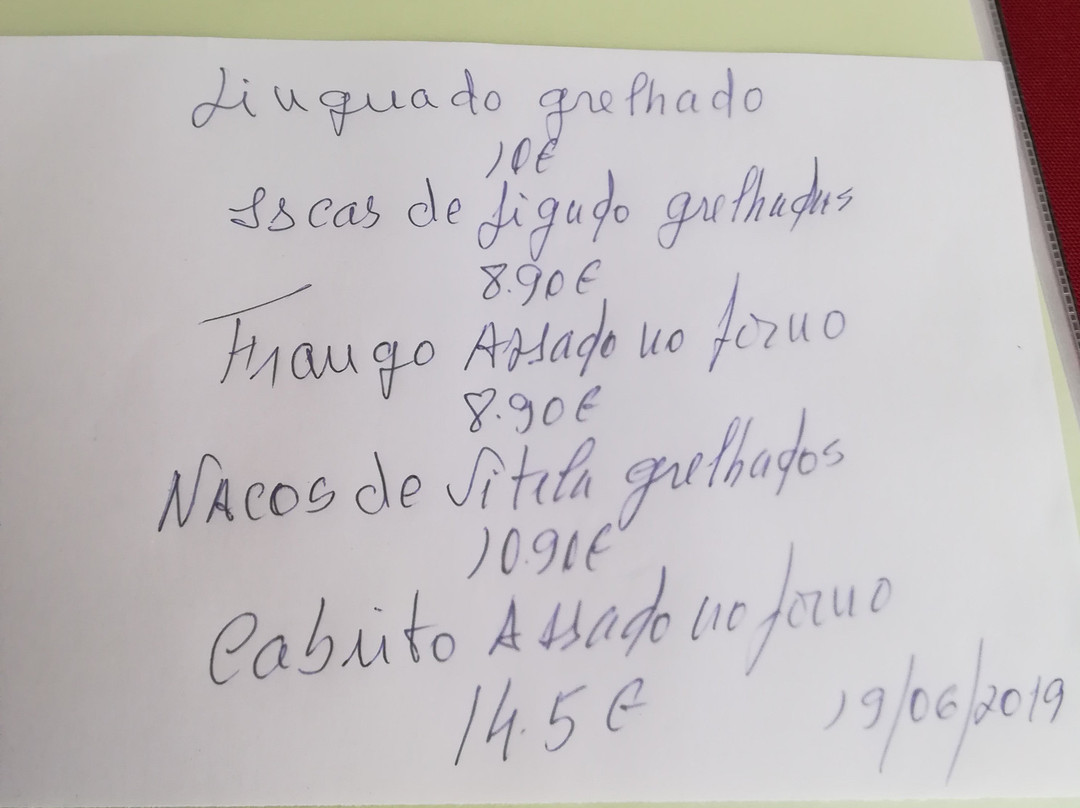 Linguado grelhado
10€
Iscas de figado grelhadas
8.90€
Frango Assado no forno
8.90€
NACOS de Vitela grelhados
10.90€
Cabrito Assado no forno
14.5€
19/06/2019